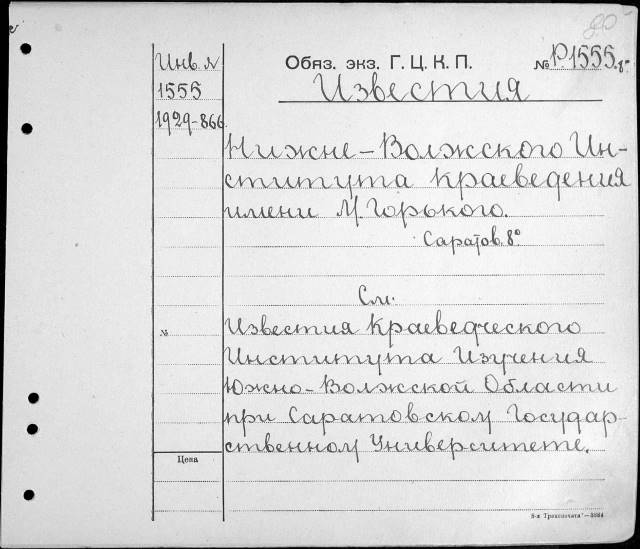 Инв. №
1555
1929-866.
Обяз. экз. Г. Ц. К. П. № Р1555. 8°
Известия
Нижне-Волжского Ин-
ститута Краеведения
имени М. Горького.
Саратов. 8°
См.
№ Известия Краеведческого
Института Изучения
Южно-Волжской Области
при Саратовском Государ-
ственном Университете.
Цена